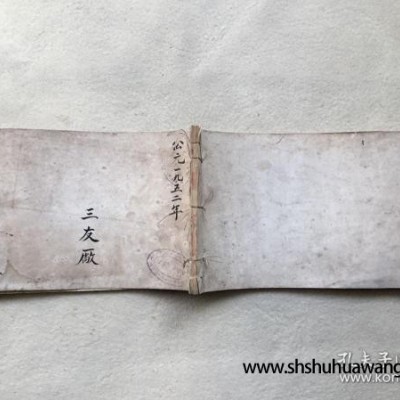 公元一九五二年
三友厰
www.shshuhuawang
孔夫子
www.kon